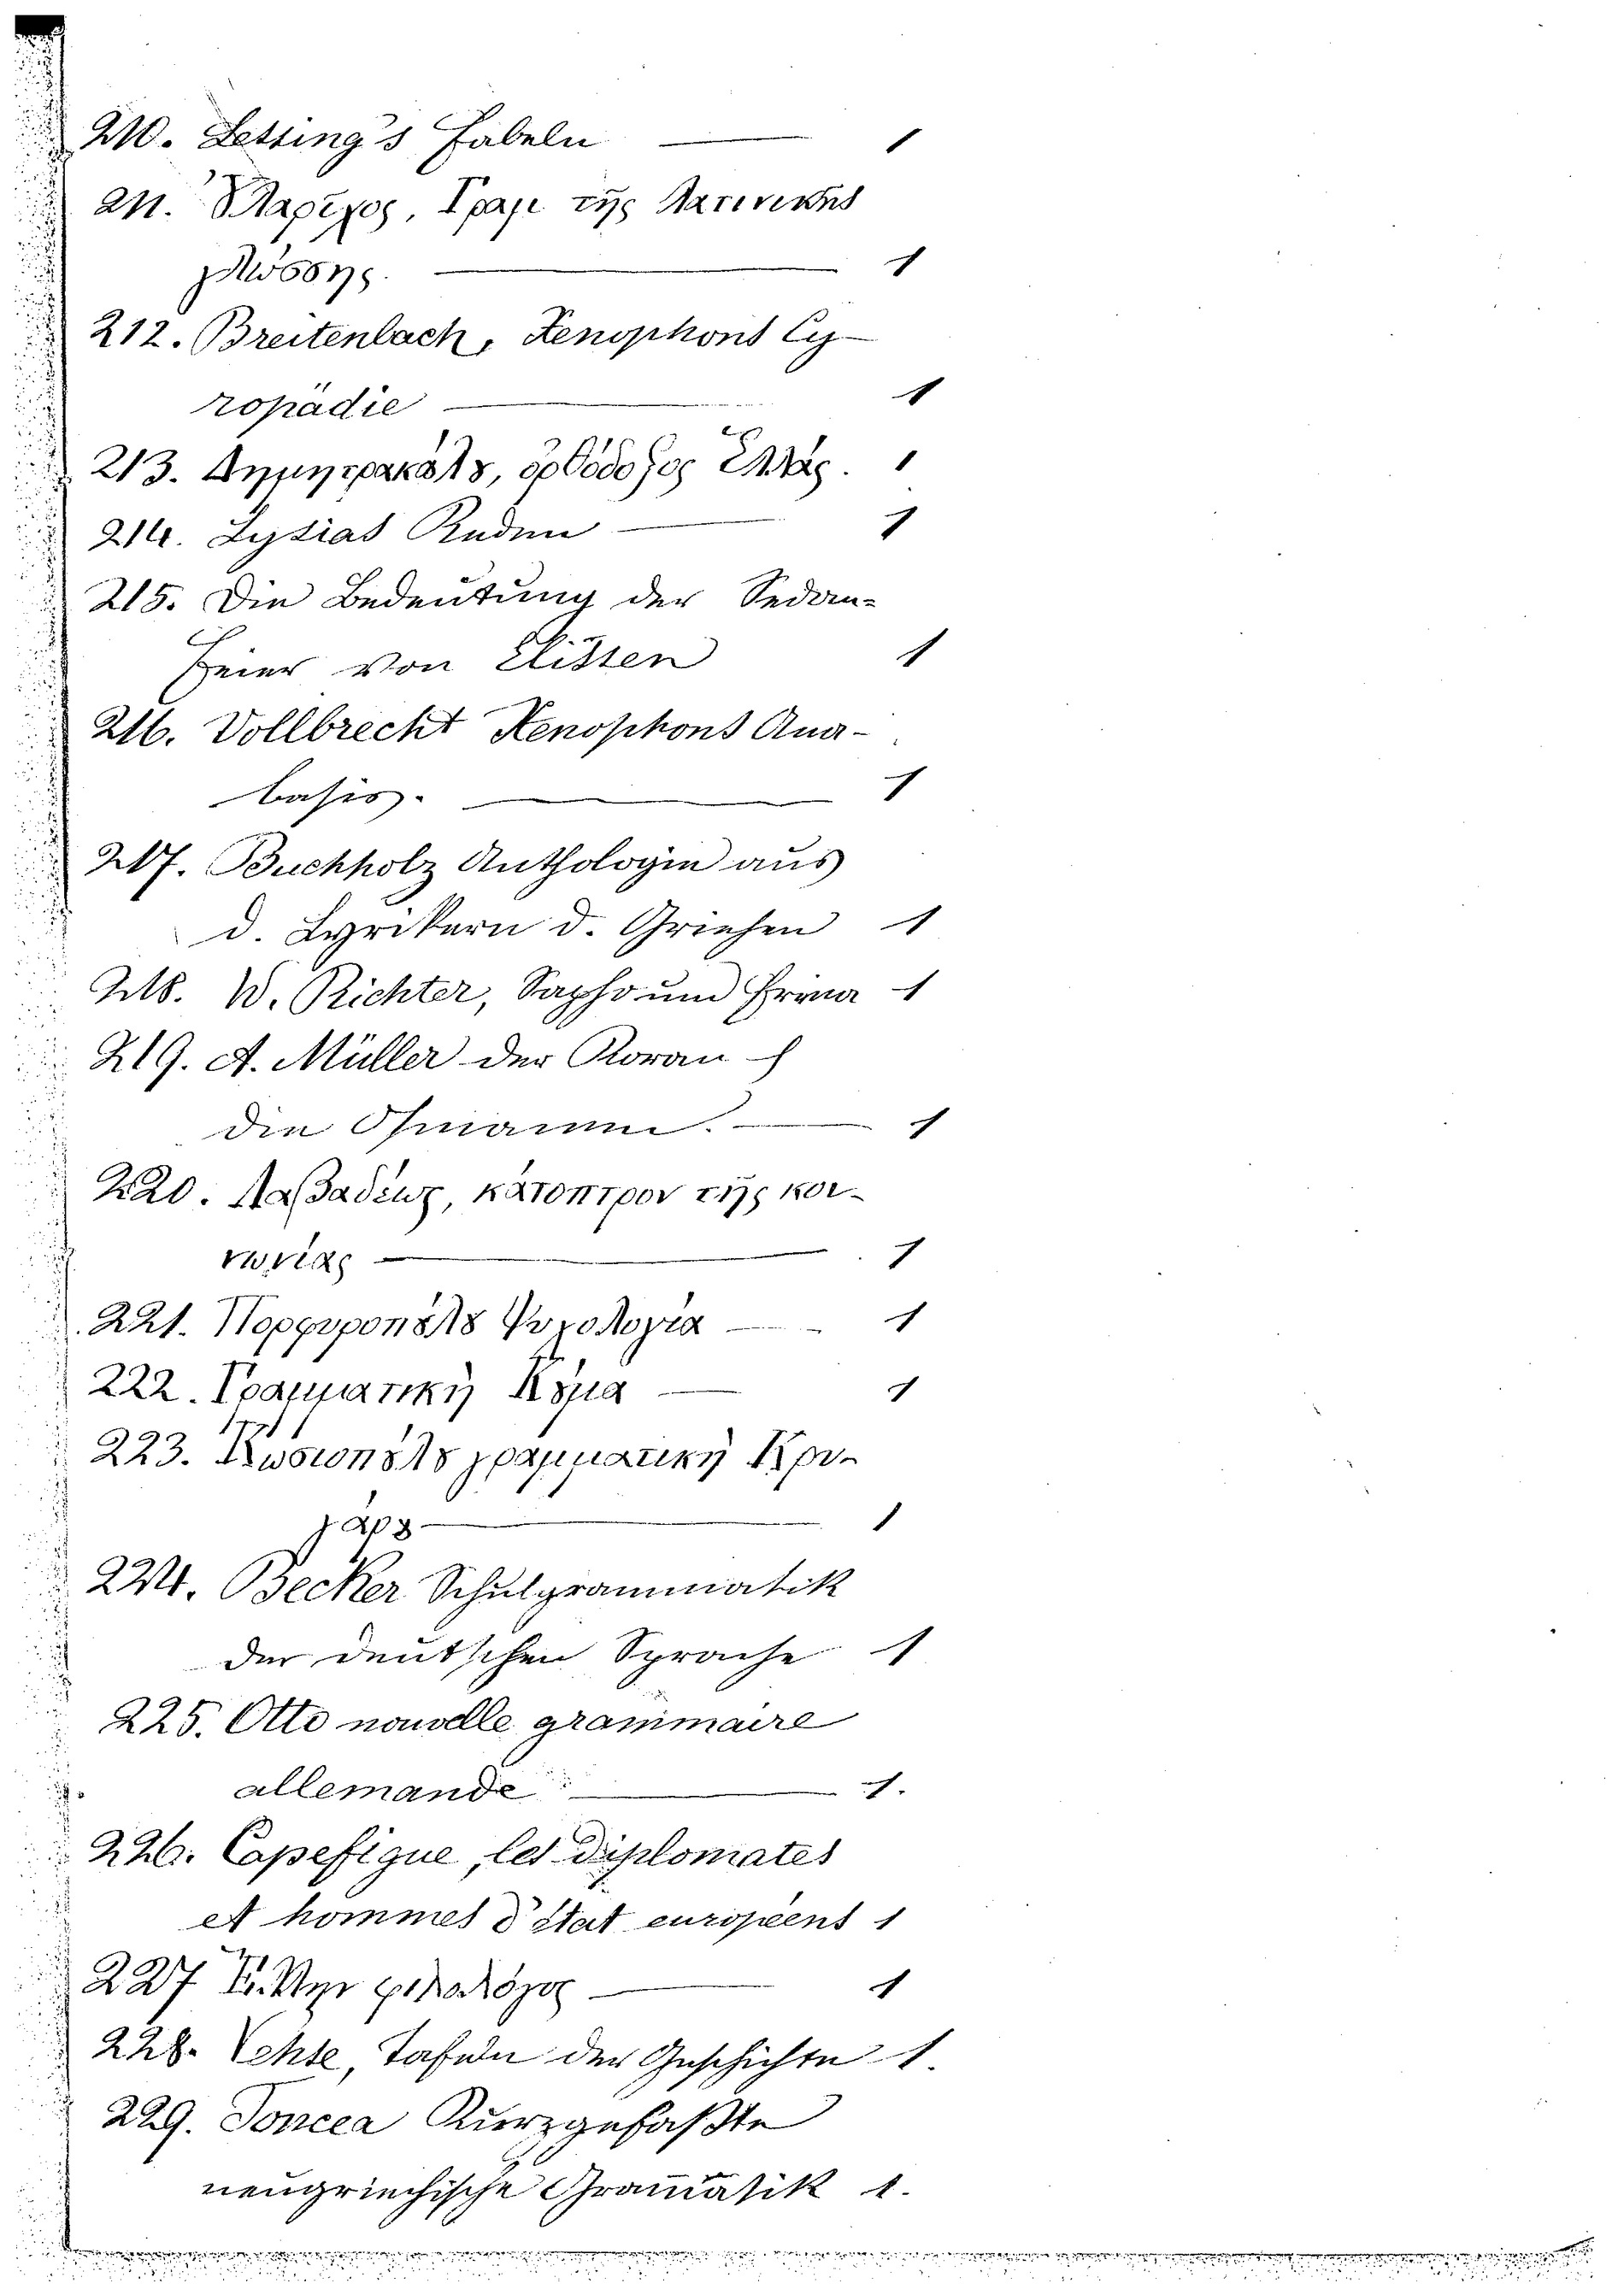 210. Lessing's Fabeln — 1
211. Ψαρίχος, Γραμ τῆς Λατινικῆς
γλώσσης. — 1
212. Breitenbach, Xenophons Cy-
ropädie — 1
213. Δημητρακόπȣλȣ, ὀρθόδοξος Ἑλλάς. 1
214. Lysias Reden — 1
215. Die Bedeutung der Sedan-
Feier von Elissen 1
216. Vollbrecht Xenophons Ana-
basis. — 1
217. Buchholz Anthologie aus
d. Lyrikern d. Griechen 1
218. W. Richter, Sapho und Erina 1
219. A. Müller der Koran
die Osmanen. — 1
220. κάτοπτρον τῆς κοι-
νωνίας — 1
221. Πορφυροπȣλȣ Ψυχολογία — 1
222. Γραμματικὴ Κȣμα — 1
223. γραμματικὴ Κρι-
γάρȣ — 1
224. Becker Schulgrammatik
der deutschen Sprache 1
225. Otto nouvelle grammaire
allemande — 1.
226. Capefigue, les diplomates
et hommes d'état européens 1
227 φιλολόγος — 1
228. Vehse, Tafeln der Geschichte 1.
229. Joncea Kurzgefaßte
neugriechische Gram̄atik 1.